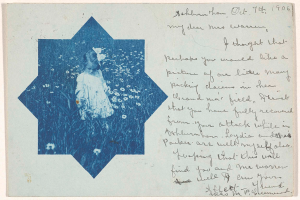 Ashburnham Oct. 7th 1906
My dear Mrs Warren,
I thought that
perhaps you would like a
picture of our little Mary
picking daisies in her
field. I trust
that you have fully recovered
from your attack while in
and
are well myself also
Hoping that this will
find you and Mr Warren
well I am Yours
Friend